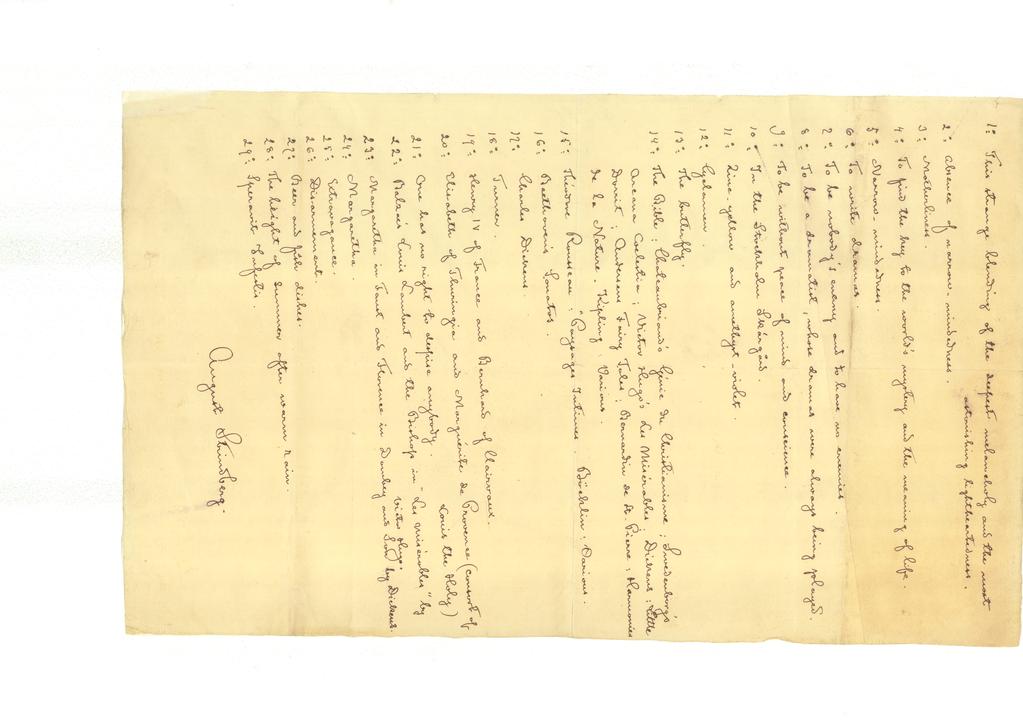 1: This strange blending of the deepest melancholy and the most
astonishing lightheartedness.
2: Absence of narrow-mindedness.
3: Motherliness.
4: To find the key to the world's mystery and the meaning of life.
5: Narrow-mindedness.
6: To write dramas.
7: To be nobody's enemy and to have no enemies.
8: To be a dramatist, whose dramas were always being played.
9: To be without peace of mind and conscience.
10: In the Stockholm Skärgård.
11: Zinc-yellow and amethyst-violet.
12: Cyclamen.
13: The butterfly.
14: The Bible; Chateaubriand's Génie du Christianisme; Swedenborg's
Arcana Coelestia; Victor Hugo's Les Misérables; Dickens: Little
Dorrit; Andersens Fairy Tales; Bernardin de St. Pierre: Harmonies
de la Nature. Kipling: Various.
15: Théodore Rousseau: "Paysages Intimes. Böcklin: Various.
16: Beethoven's Sonatas.
17: Charles Dickens.
18: Turner.
19: Henry IV of France and Bernhard of Clairvaux.
20: Elisabeth of Thuringia and Marguerite de Provence (consort of
Louis the Holy)
21: One has no right to despise anybody.
22: Balzacs Louis Lambert and the Bishop in "Les Misérables" by
Victor Hugo.
23: Margaretha in Faust and Florence in Dombey and Son by Dickens.
24: Margaretha.
25: Extravagance.
26: Disarmement.
27: Beer and fish dishes.
28: The height of summer after warm rain.
29: Speravit Infestis.
August Strindberg.